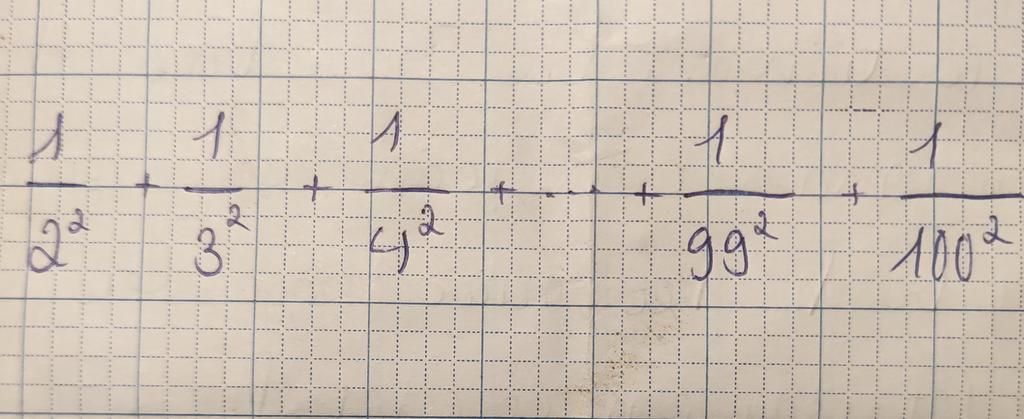 1/2² + 1/3² + 1/4² + ... + 1/99² + 1/100²